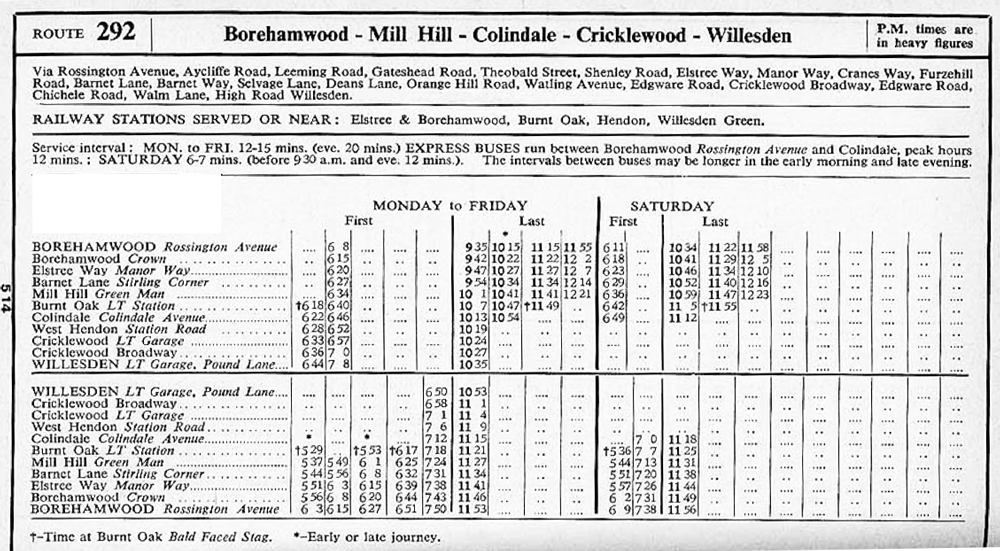 ROUTE 292
Borehamwood - Mill Hill - Colindale - Cricklewood - Willesden
P.M. times are
in heavy figures
Via Rossington Avenue, Aycliffe Road, Leeming Road, Gateshead Road, Theobald Street, Shenley Road, Elstree Way, Manor Way, Cranes Way, Furzehill
Road, Barnet Lane, Barnet Way, Selvage Lane, Deans Lane, Orange Hill Road, Watling Avenue, Edgware Road, Cricklewood Broadway, Edgware Road,
Chichele Road, Walm Lane, High Road Willesden.
RAILWAY STATIONS SERVED OR NEAR: Elstree & Borehamwood, Burnt Oak, Hendon, Willesden Green.
Service interval: MON. to FRI. 12-15 mins. (eve. 20 mins.) EXPRESS BUSES run between Borehamwood Rossington Avenue and Colindale, peak hours
12 mins.: SATURDAY 6-7 mins. (before 9 30 a.m. and eve. 12 mins.). The intervals between buses may be longer in the early morning and late evening.
MONDAY to FRIDAY SATURDAY
First Last First Last
*
BOREHAMWOOD Rossington Avenue .... 6 8 .... .... .... 9 35 10 15 11 15 11 55 6 11 .... 10 34 11 22 11 58
Borehamwood Crown .... 6 15 .... .... .... 9 42 10 22 11 22 12 2 6 18 .... 10 41 11 29 12 5
Elstree Way Manor Way .... 6 20 .... .... .... 9 47 10 27 11 27 12 7 6 23 .... 10 46 11 34 12 10
Barnet Lane Stirling Corner .... 6 27 .... .... .... 9 54 10 34 11 34 12 14 6 29 .... 10 52 11 40 12 16
Mill Hill Green Man .... 6 34 .... .... .... 10 1 10 41 11 41 12 21 6 36 .... 10 59 11 47 12 23
Burnt Oak LT Station †6 18 6 40 .. .. .. 10 7 10 47 †11 49 .. 6 42 .. 11 5 †11 55 ..
Colindale Colindale Avenue 6 22 6 46 .... .... .... 10 13 10 54 .... .... 6 49 .... 11 12 .... ....
West Hendon Station Road 6 28 6 52 .. .. .. 10 19
Cricklewood LT Garage 6 33 6 57 .... .... .... 10 24
Cricklewood Broadway 6 36 7 0 .. .. .. 10 27
WILLESDEN LT Garage, Pound Lane 6 44 7 8 .... .... .... 10 35
WILLESDEN LT Garage, Pound Lane .... .... .... .... 6 50 10 53
Cricklewood Broadway .. .. .. .. 6 58 11 1
Cricklewood LT Garage .... .... .... .... 7 1 11 4
West Hendon Station Road .. .. .. .. 7 6 11 9
Colindale Colindale Avenue * .... * .... 7 12 11 15 .... .... .... .... 7 0 11 18
Burnt Oak LT Station †5 29 .. †5 53 †6 17 7 18 11 21 .. .. .. †5 36 7 7 11 25
Mill Hill Green Man 5 37 5 49 6 1 6 25 7 24 11 27 .... .... .... 5 44 7 13 11 31
Barnet Lane Stirling Corner 5 44 5 56 6 8 6 32 7 31 11 34 .... .... .... 5 51 7 20 11 38
Elstree Way Manor Way 5 51 6 3 6 15 6 39 7 38 11 41 .... .... .... 5 57 7 26 11 44
Borehamwood Crown 5 56 6 8 6 20 6 44 7 43 11 46 .... .... .... 6 2 7 31 11 49
BOREHAMWOOD Rossington Avenue 6 3 6 15 6 27 6 51 7 50 11 53 .... .... .... 6 9 7 38 11 56
†-Time at Burnt Oak Bald Faced Stag. *-Early or late journey.
514